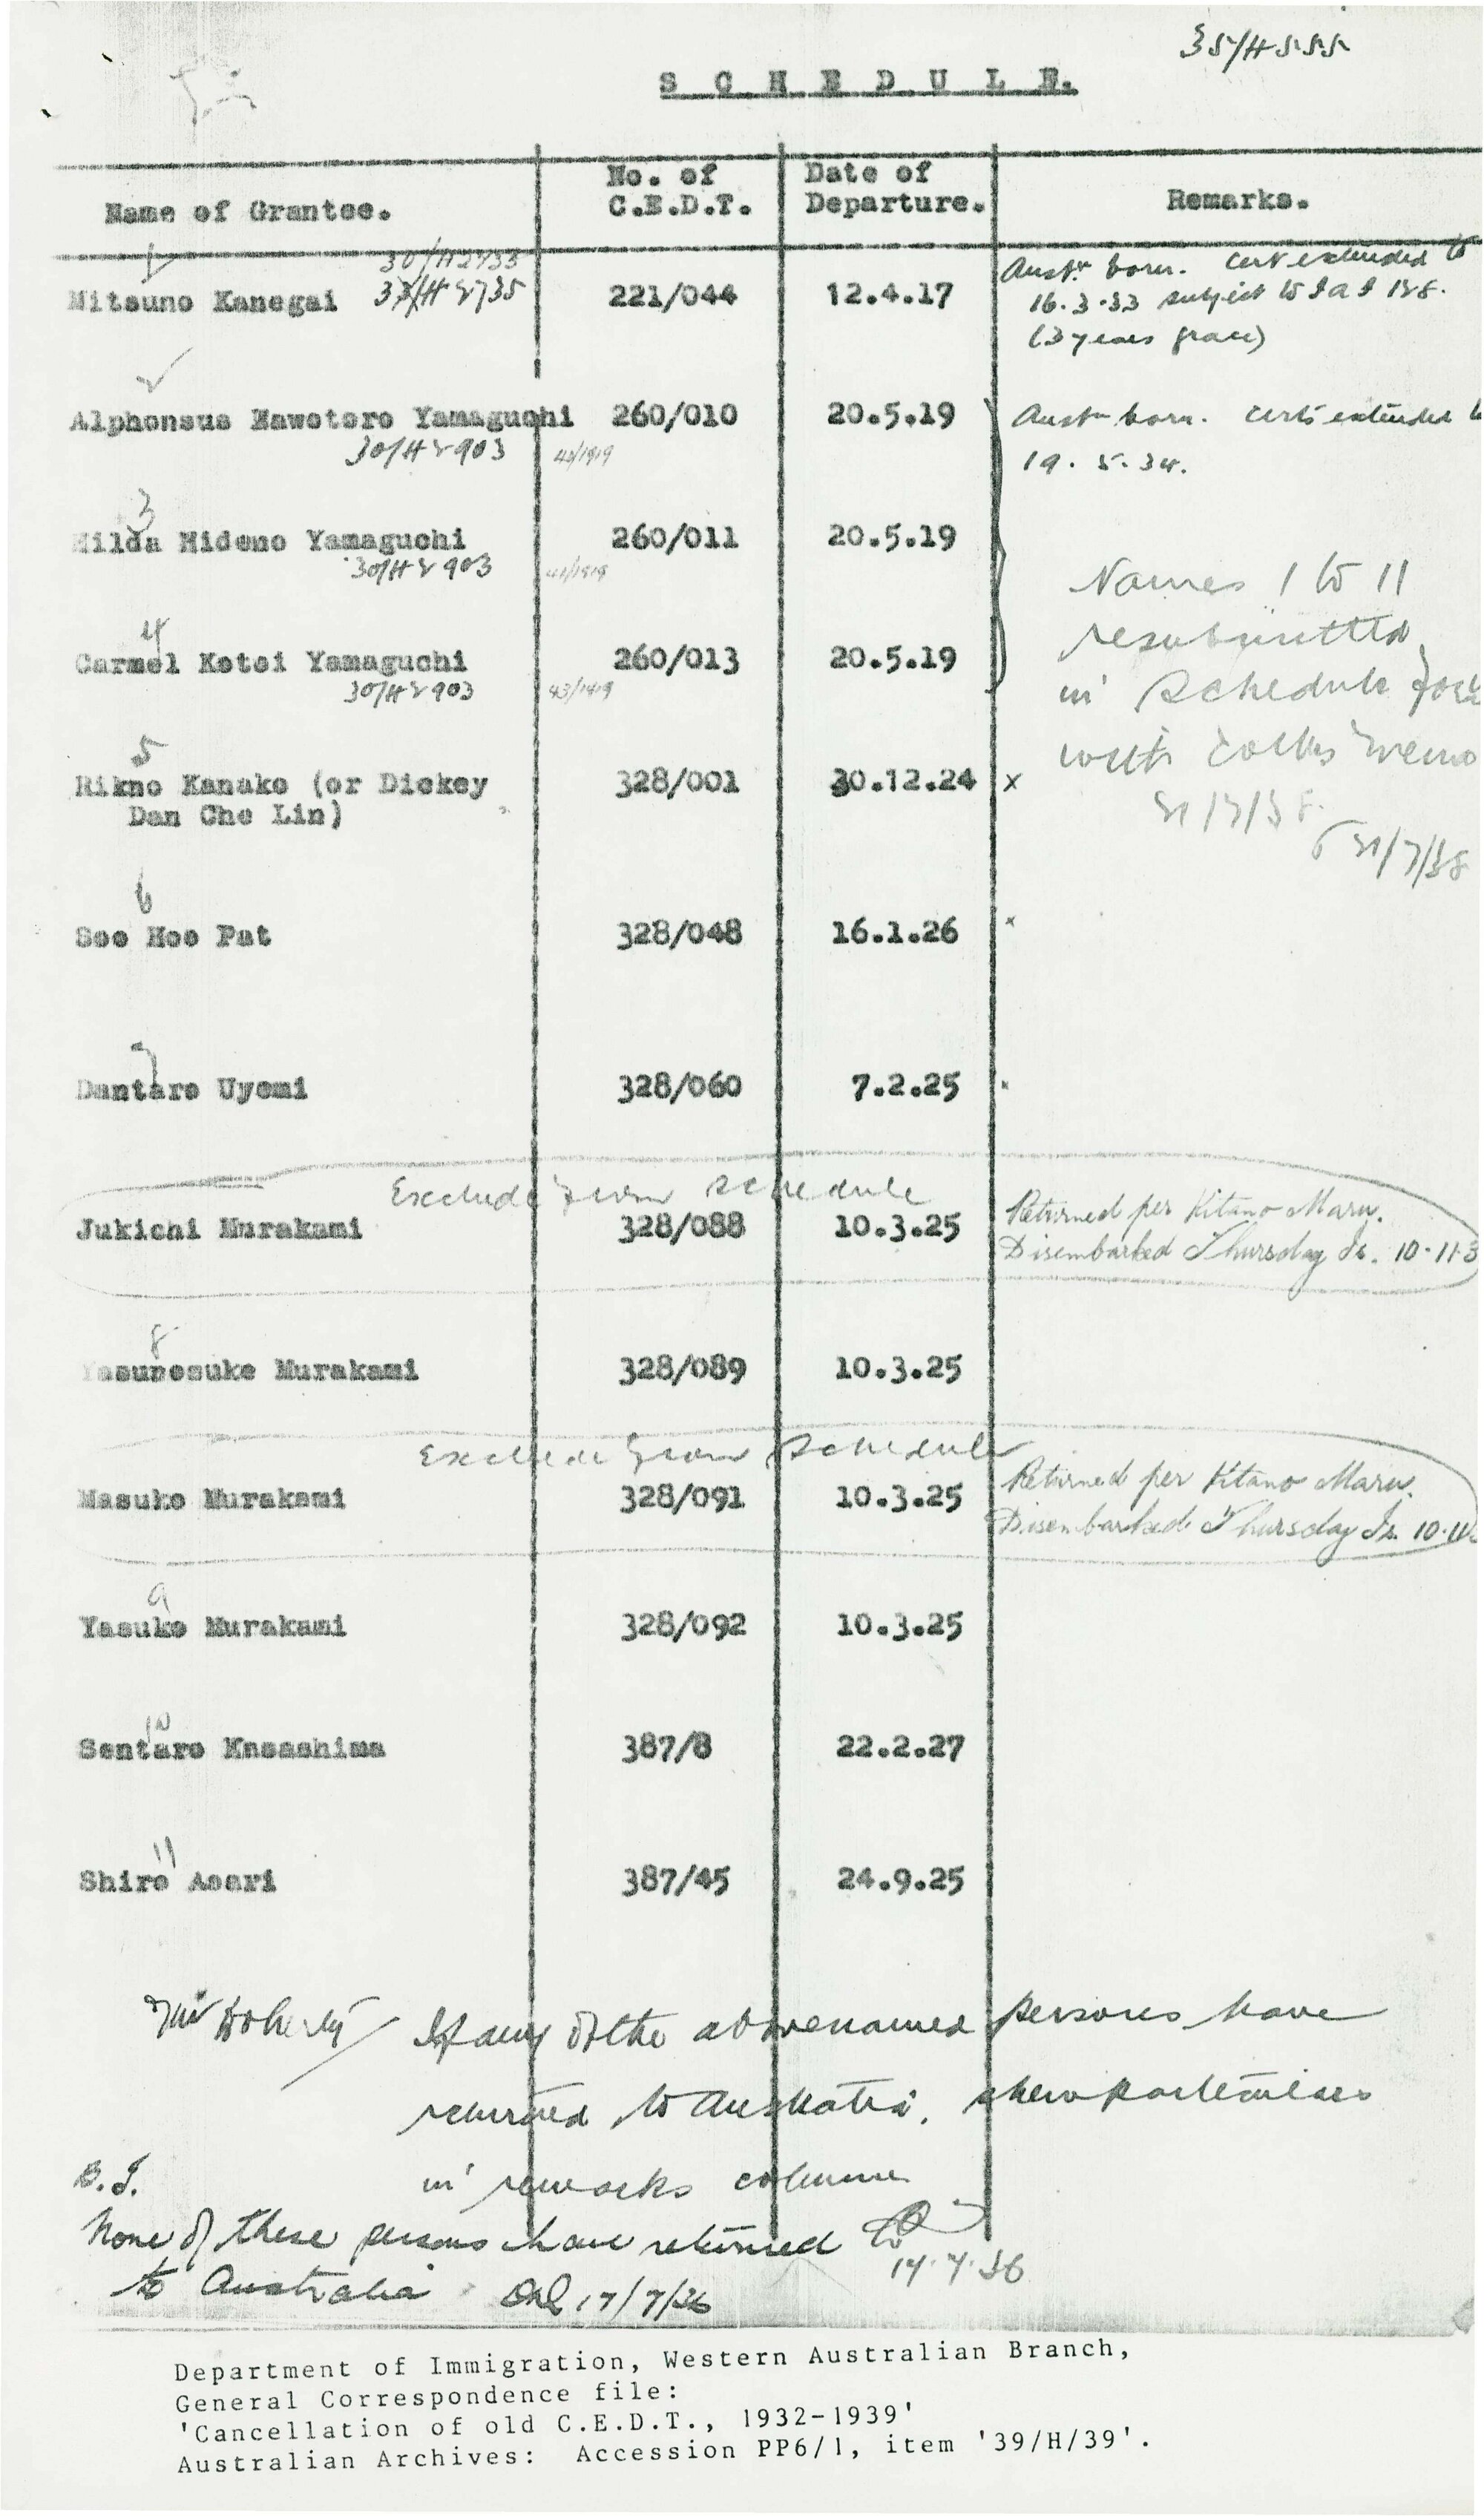 35/H555
SCHEDULE.
Name of Grantee.
No. of
C.E.D.T.
Date of
Departure.
Remarks.
1
30/H2733
33/H2735
Mitsuno Kanegai 221/044 12.4.17
Austn born. Cert extended to
16.3.33 subject to
(3 years grace)
2
Alphonsus Hawotoro Yamaguchi 260/010 20.5.19 Austn born. Certs extended to
30/H2903 42/1919 19.5.34.
3
Hilda Hideno Yamaguchi 260/011 20.5.19
30/H2903 41/1919
Names 1 to 11
resubmitted
in schedule
with Colls memo
31/7/38.
31/7/38
4
Carmel Kotoi Yamaguchi 260/013 20.5.19
30/H2903 43/1919
5
Rikno Kanako (or Dickey 328/001 30.12.24 x
Dan Che Lin)
6
See Hoe Pat 328/048 16.1.26 x
7
Dantaro Uyemi 328/060 7.2.25
Exclude from schedule
Jukichi Murakami 328/088 10.3.25
Returned per Kitano Maru.
Disembarked Thursday Is. 10.11.3
8
Yasunosuke Murakami 328/089 10.3.25
Exclude from schedule
Masuko Murakami 328/091 10.3.25
Returned per Kitano Maru.
Disembarked Thursday Is. 10.11.
9
Yasuko Murakami 328/092 10.3.25
10
Sentaro Knsashima 387/8 22.2.27
11
Shiro Asari 387/45 24.9.25
Mr Doherty/ If any of the abovenamed persons have
returned to Australia, show particulars
in remarks column
17.7.36
B.I.
None of these persons have returned
to Australia 17/7/36
Department of Immigration, Western Australian Branch,
General Correspondence file:
'Cancellation of old C.E.D.T., 1932-1939'
Australian Archives: Accession PP6/1, item '39/H/39'.